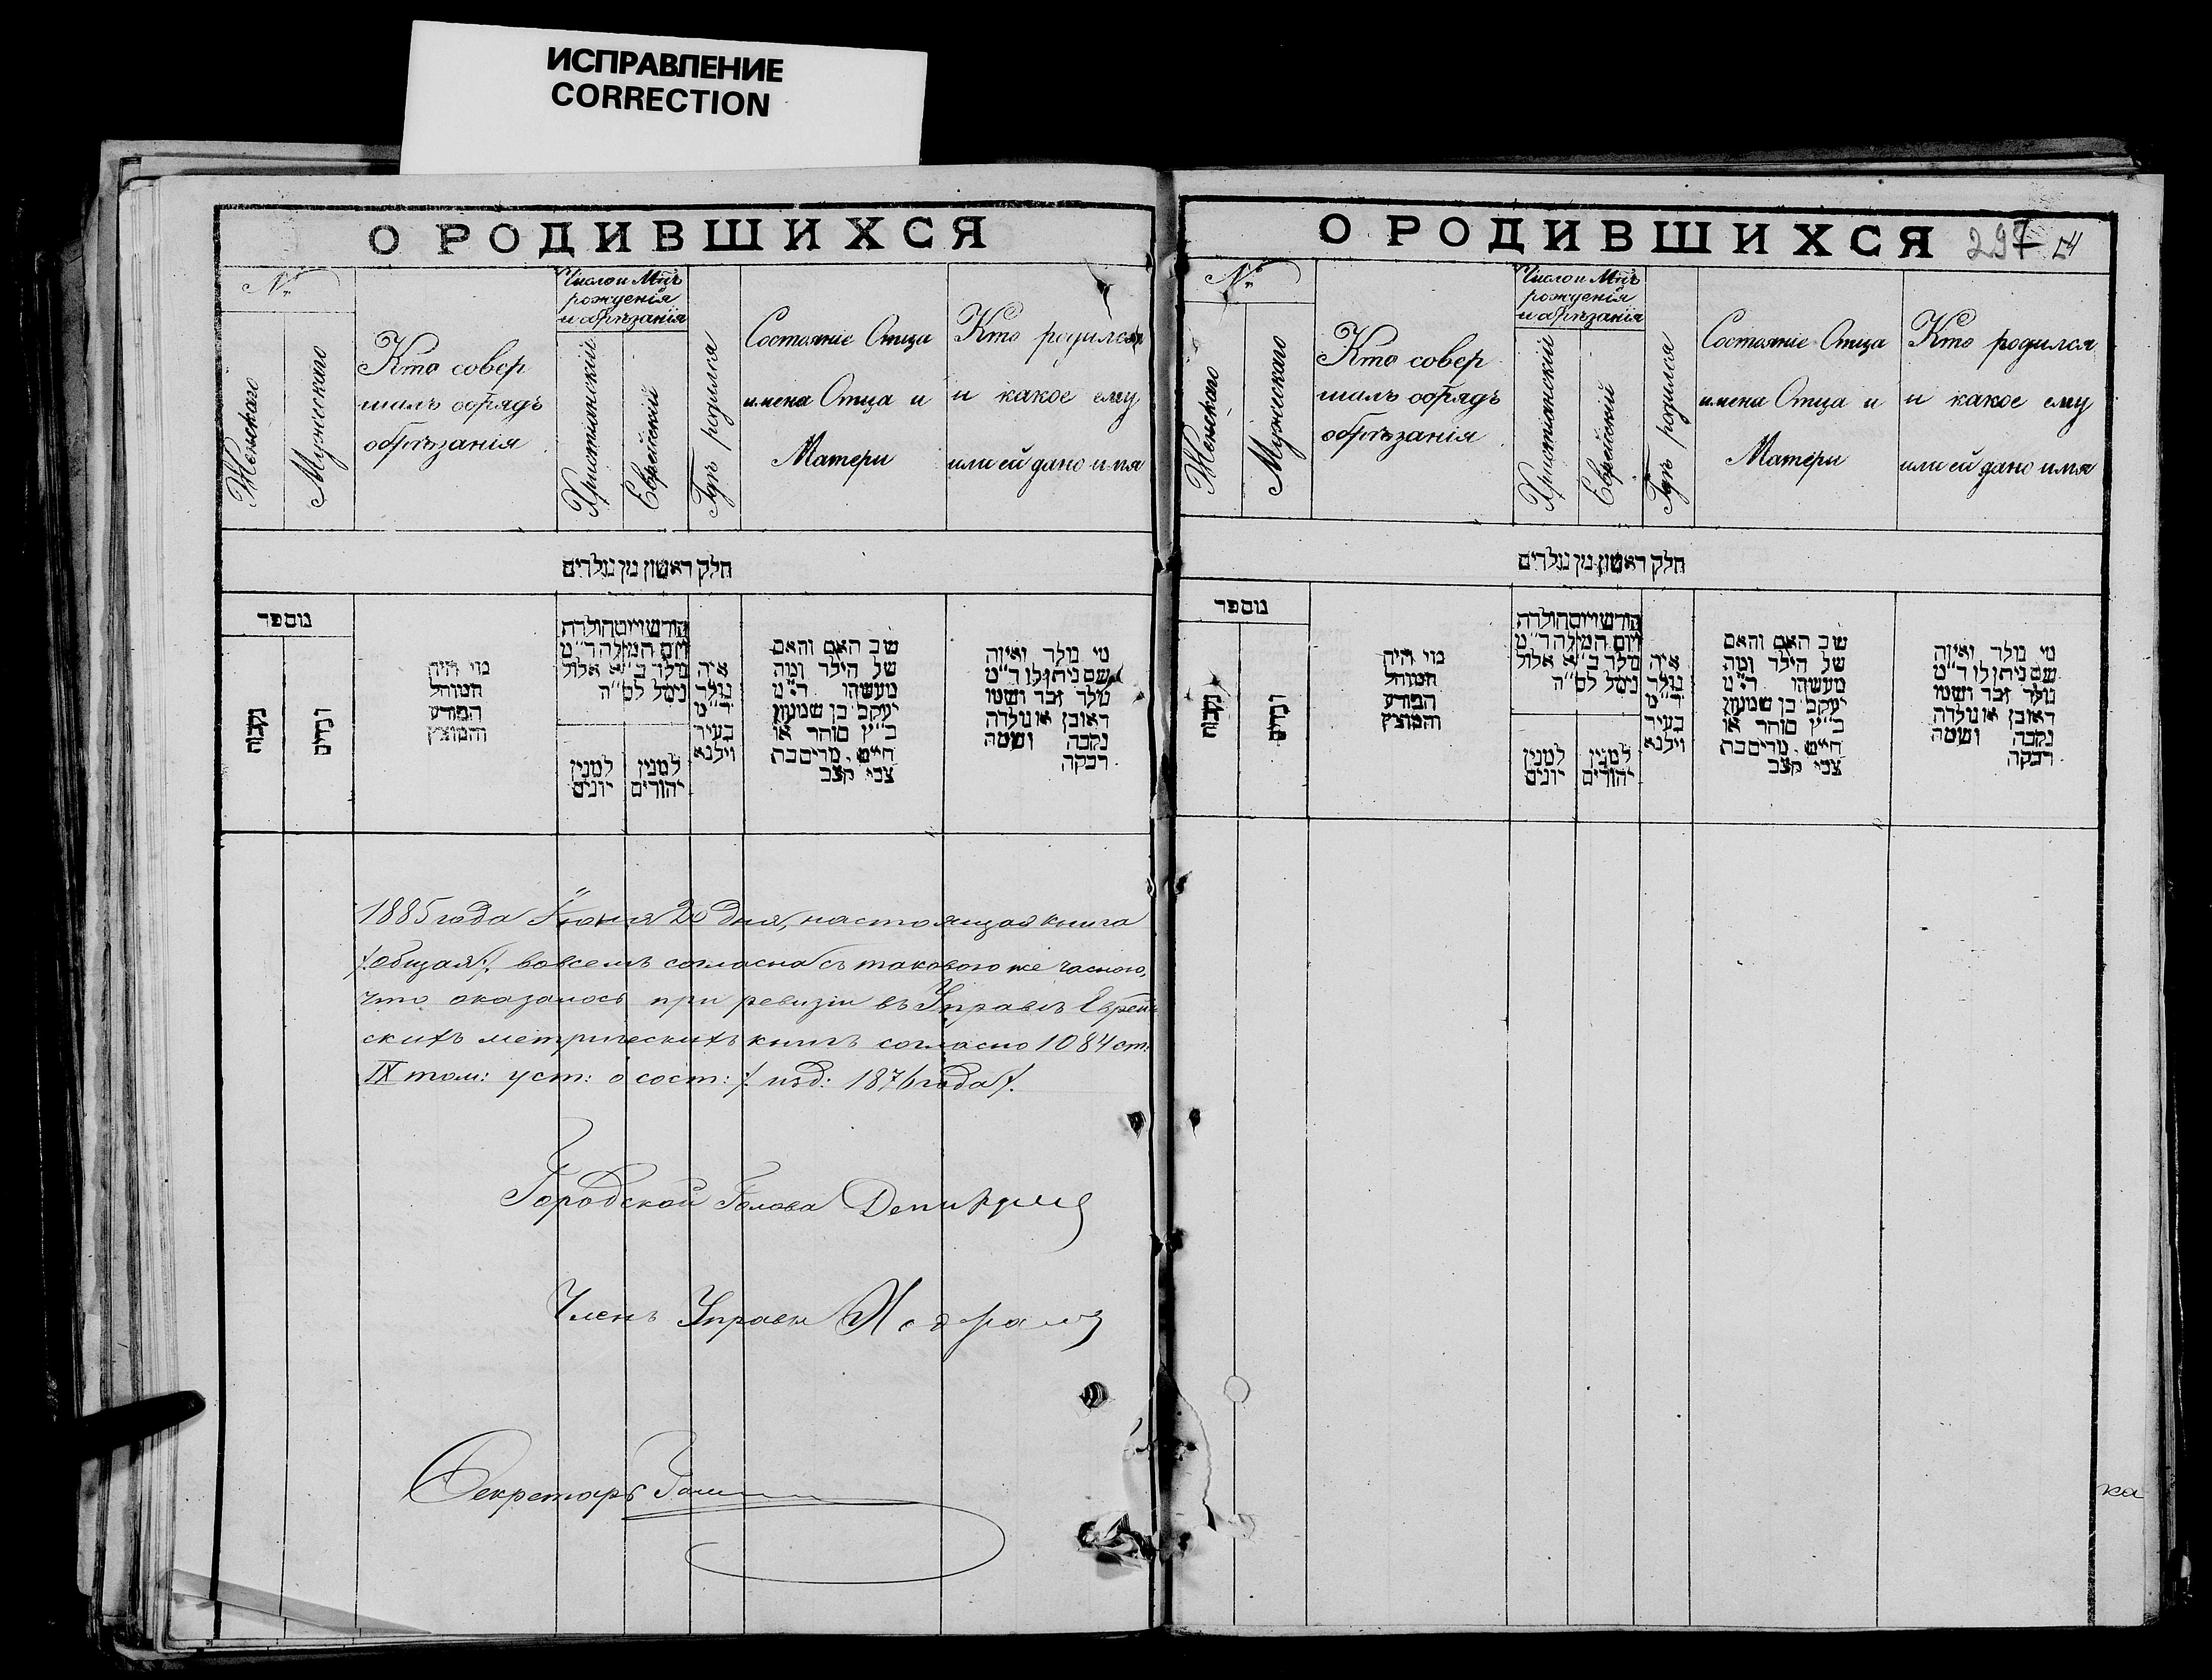 ИСПРАВЛЕНИЕ
CORRECTION
О РОДИВШИХСЯ
№
Женскаго
Мужескаго
Кто совер
шалъ обрядъ
обрѣзанія
Число и Мцъ
рожденія
и обрѣзанія
Христіанскій
Еврейскій
Гдѣ родился
Состояніе Отца
имена Отца и
Матери
Кто родился
и какое ему
или ей дано имя
חלק ראשון מן נולדים
מספר
נקבות
זכרים
מי היה
המוהל
הפורע
והמוצץ
חודש ויום הולדת
ויום המילה ד"מ
נולד ב"א אלול
נימל לח"ה
למנין
יונים
למנין
יהודים
איה
נולד
ד"מ
בעיר
ווילנא
שב האם והאם
של הילד ומה
מעשהו ד"מ
יעקב בן שמעון
כ"ץ סוחר או
חייט, מרים בת
צבי קצב
מי נולד ואיזה
שם ניתן לו ד"מ
נולד זכר ושמו
ראובן או נולדה
נקבה ושמה
רבקה
1885 года Іюня 20 дня, настоящая книга
/:общая:/ вовсемъ согласна съ таковою же часною,
что оказалось при ревизіи въ Управѣ Еврей
скихъ метрическихъ книгъ согласно 1084 ст:
IX том: уст: о сост: /: изд: 1876 года /.
Городской Голова
Членъ Управы
Секретарь
О РОДИВШИХСЯ 297
№
Женскаго
Мужескаго
Кто совер
шалъ обрядъ
обрѣзанія
Число и Мцъ
рожденія
и обрѣзанія
Христіанскій
Еврейскій
Гдѣ родился
Состояніе Отца
имена Отца и
Матери
Кто родился
и какое ему
или ей дано имя
חלק ראשון מן נולדים
מספר
נקבות
זכרים
מי היה
המוהל
הפורע
והמוצץ
חודש ויום הולדת
ויום המילה ד"מ
נולד ב"א אלול
נימל לח"ה
למנין
יונים
למנין
יהודים
איה
נולד
ד"מ
בעיר
ווילנא
שב האם והאם
של הילד ומה
מעשהו ד"מ
יעקב בן שמעון
כ"ץ סוחר או
חייט, מרים בת
צבי קצב
מי נולד ואיזה
שם ניתן לו ד"מ
נולד זכר ושמו
ראובן או נולדה
נקבה ושמה
רבקה
ка